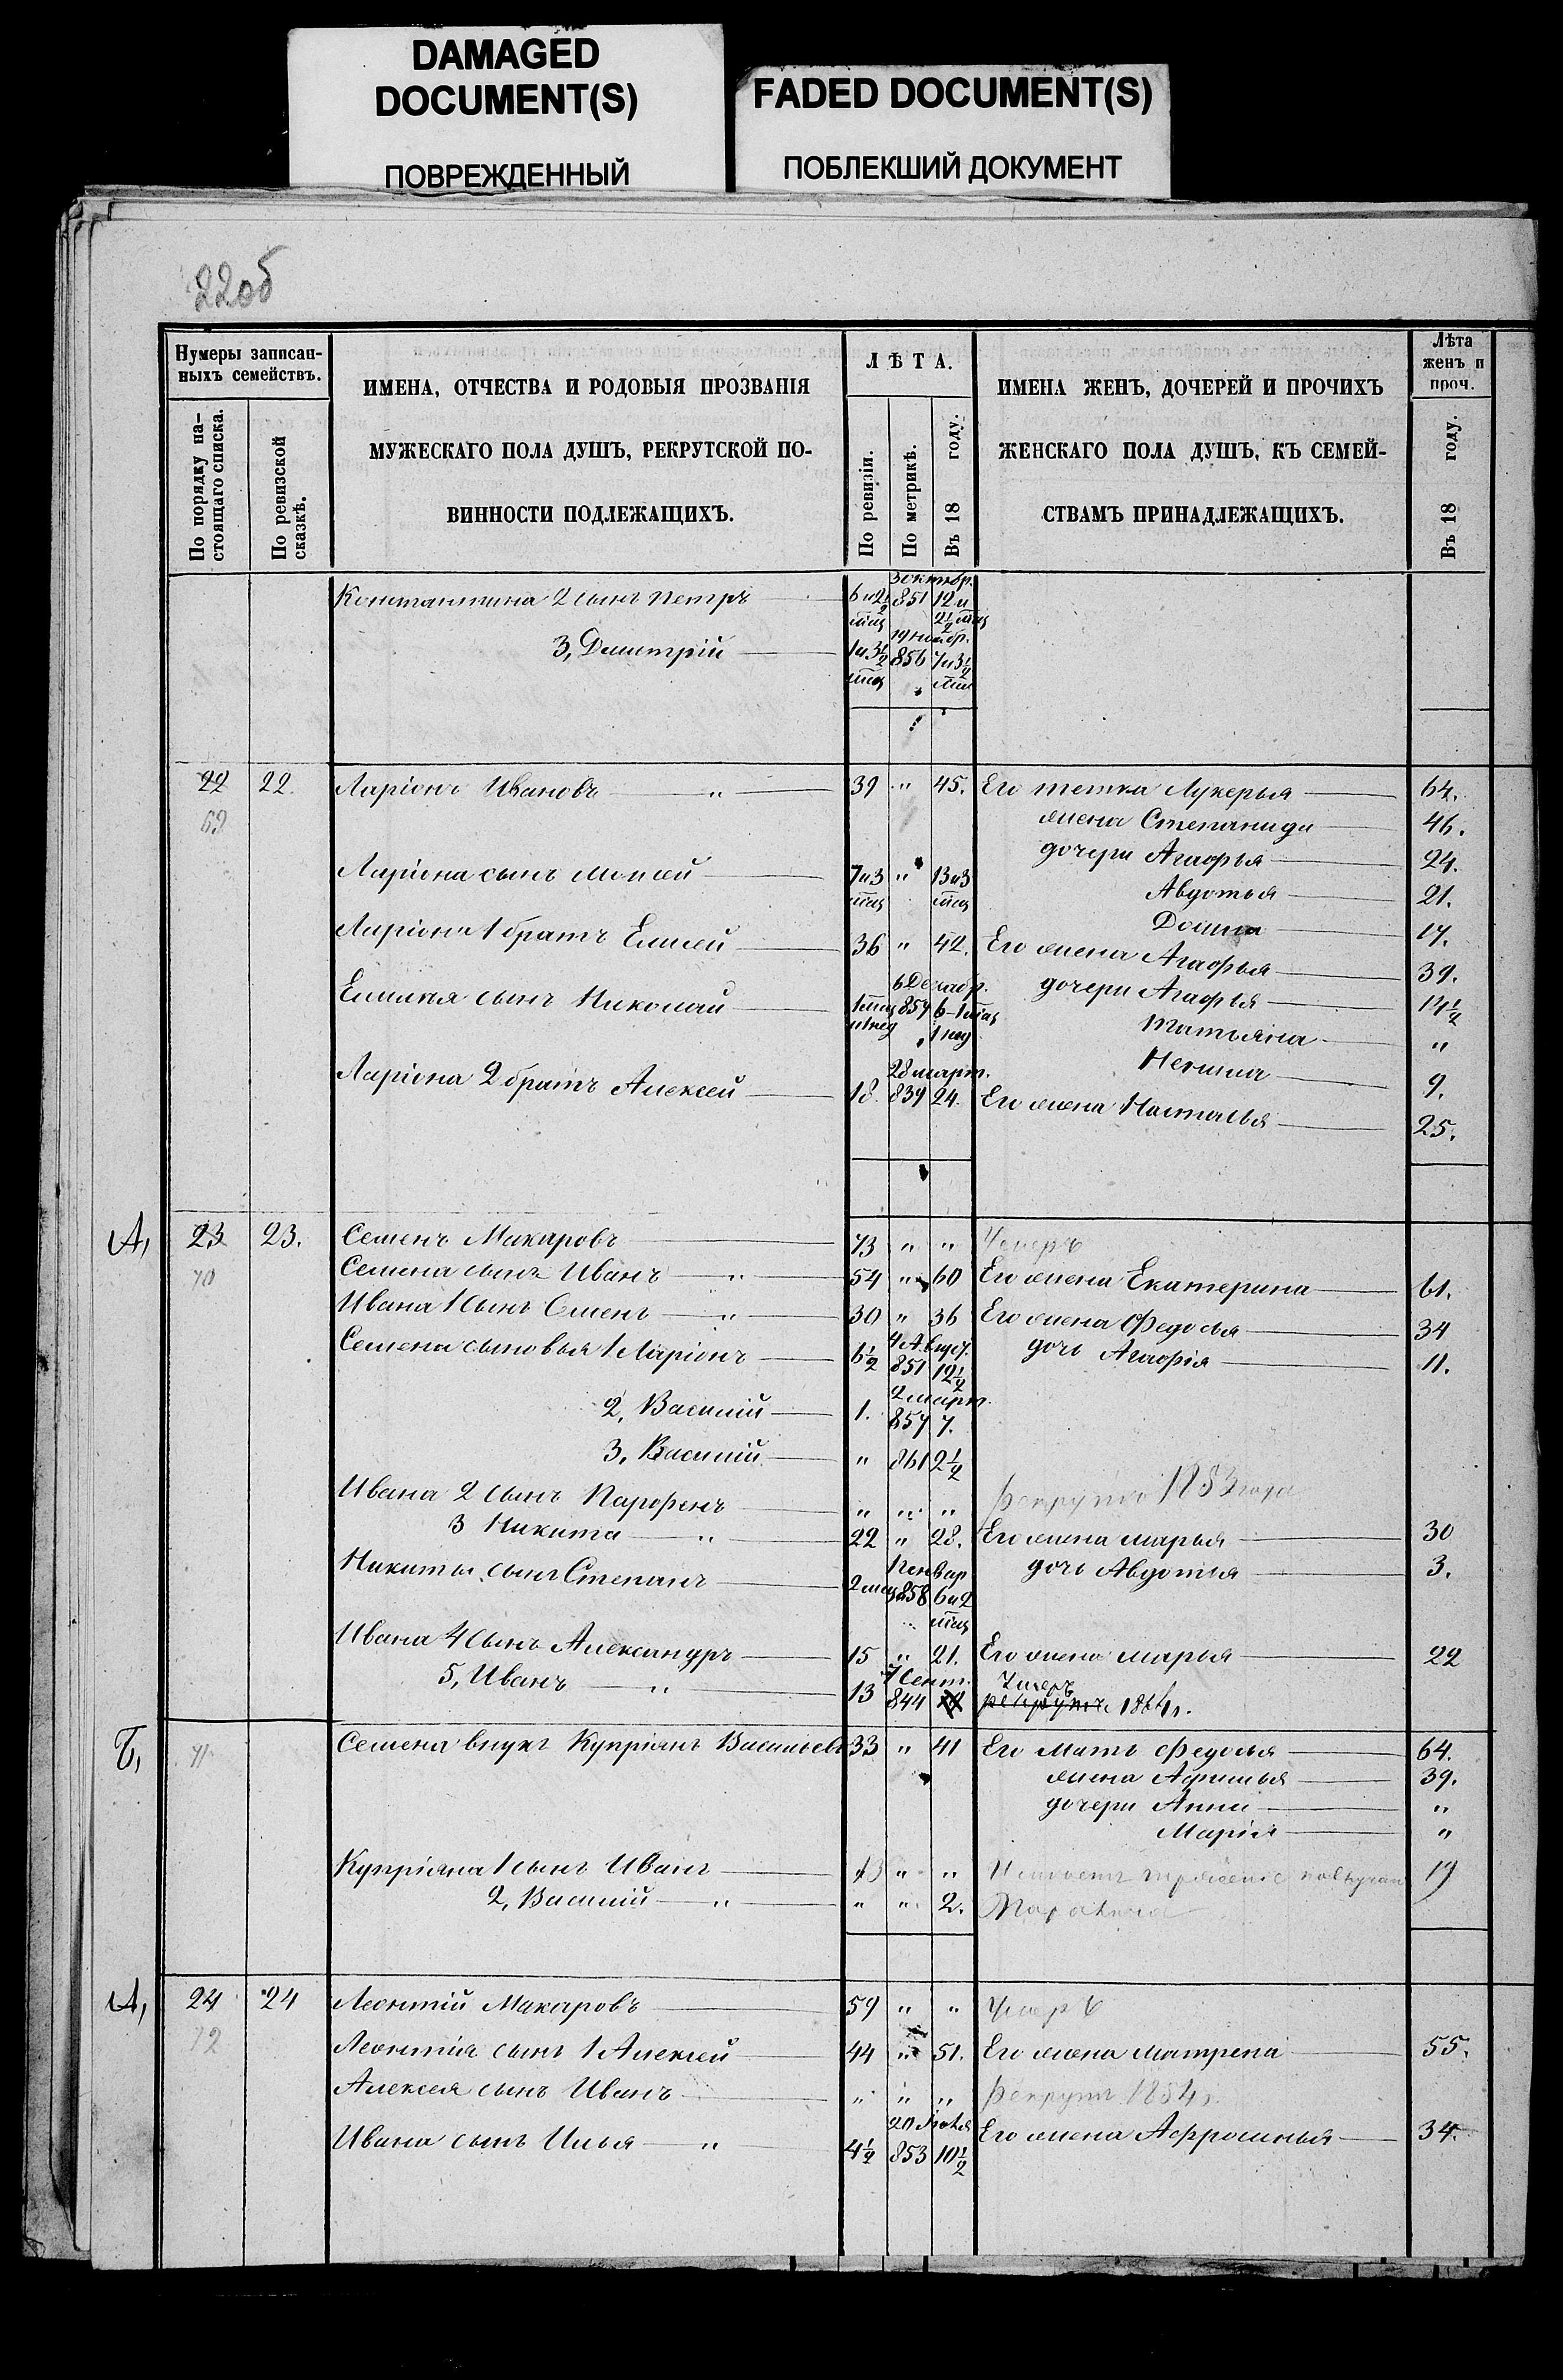 DAMAGED
DOCUMENT(S)
ПОВРЕЖДЕННЫЙ
FADED DOCUMENT(S)
ПОБЛЕКШИЙ ДОКУМЕНТ
22об
Нумеры записан-
ныхъ семействъ.
По порядку на-
стоящаго списка.
По ревизской
сказкѣ.
ИМЕНА, ОТЧЕСТВА И РОДОВЫЯ ПРОЗВАНІЯ
МУЖЕСКАГО ПОЛА ДУШЪ, РЕКРУТСКОЙ ПО-
ВИННОСТИ ПОДЛЕЖАЩИХЪ.
ЛѢТА.
По ревизіи.
По метрикѣ.
Въ 18 году.
ИМЕНА ЖЕНЪ, ДОЧЕРЕЙ И ПРОЧИХЪ
ЖЕНСКАГО ПОЛА ДУШЪ, КЪ СЕМЕЙ-
СТВАМЪ ПРИНАДЛЕЖАЩИХЪ.
Лѣта
женъ и
проч.
Въ 18 году.
3 октябр.
Константина 2 сынъ Петръ 6 и 2½ 851 12 и
мѣс 2½ мѣс
19 ноябр.
3, Дмитрій 1 и 3½ 856 7 и 3½
мѣс
22 22. Ларіонъ Ивановъ " 39 " 45. Его тетка Лукерья 64.
69 жена Степанида 46.
дочери Агафья 24.
Ларіона сынъ Моисей 7 и 3 " 13 и 3 Авдотья 21.
мѣс мѣс
Домна 17.
Ларіона 1 братъ Елисей 36 " 42. Его жена Агафья 39.
6 Декабр. дочери Агафья 14½
Елисея сынъ Николай 1 мѣс 857 6-1 мѣс
и 1 нед 1 нед Татьяна "
28 март. 9.
Ларіона 2 братъ Алексей 18 839 24. Его жена Настасья 25.
А, 23 23. Семенъ Макаровъ 73 " " Умеръ
70 Семена сынъ Иванъ " 54 " 60 Его жена Екатерина 61.
Ивана 1 сынъ Семенъ " 30 " 36 Его жена Федосья 34
4 Август.
Семена сыновья 1 Ларіонъ 6½ 851 12½ дочь Агафія 11.
2 март.
2, Василій 1. 857 7.
3, Василій " 861 2½
Ивана 2 сынъ Парфенъ " " " рекрутъ 1853 года
3 Никита " 22 " 28. Его жена Марья 30
1 Генвар
Никиты сынъ Степанъ 2 мѣс 858 6 и 2 дочь Авдотья 3.
мѣс
Ивана 4 сынъ Александръ 15 " 21. Его жена Марья 22
7 Сент. Умеръ
5, Иванъ " 13 844 рекрутъ 1864 г.
Б, 71 Семена внукъ Купріянъ Васильевъ 33 " 41 Его мать Федосья 64.
жена Афимья 39.
дочери Анна "
Марія "
Купріяна 1 сынъ Иванъ 13 " " 19
2, Василій " " " 2.
А, 24 24 Леонтій Макаровъ 59 " " Умеръ
72 Леонтія сынъ 1 Алексей 44 " 51. Его жена Матрена 55.
Алексея сынъ Иванъ " " " рекрутъ 1854 г.
20 Іюля
Ивана сынъ Илья " 4½ 853 10½ Его жена Афросинья 34.